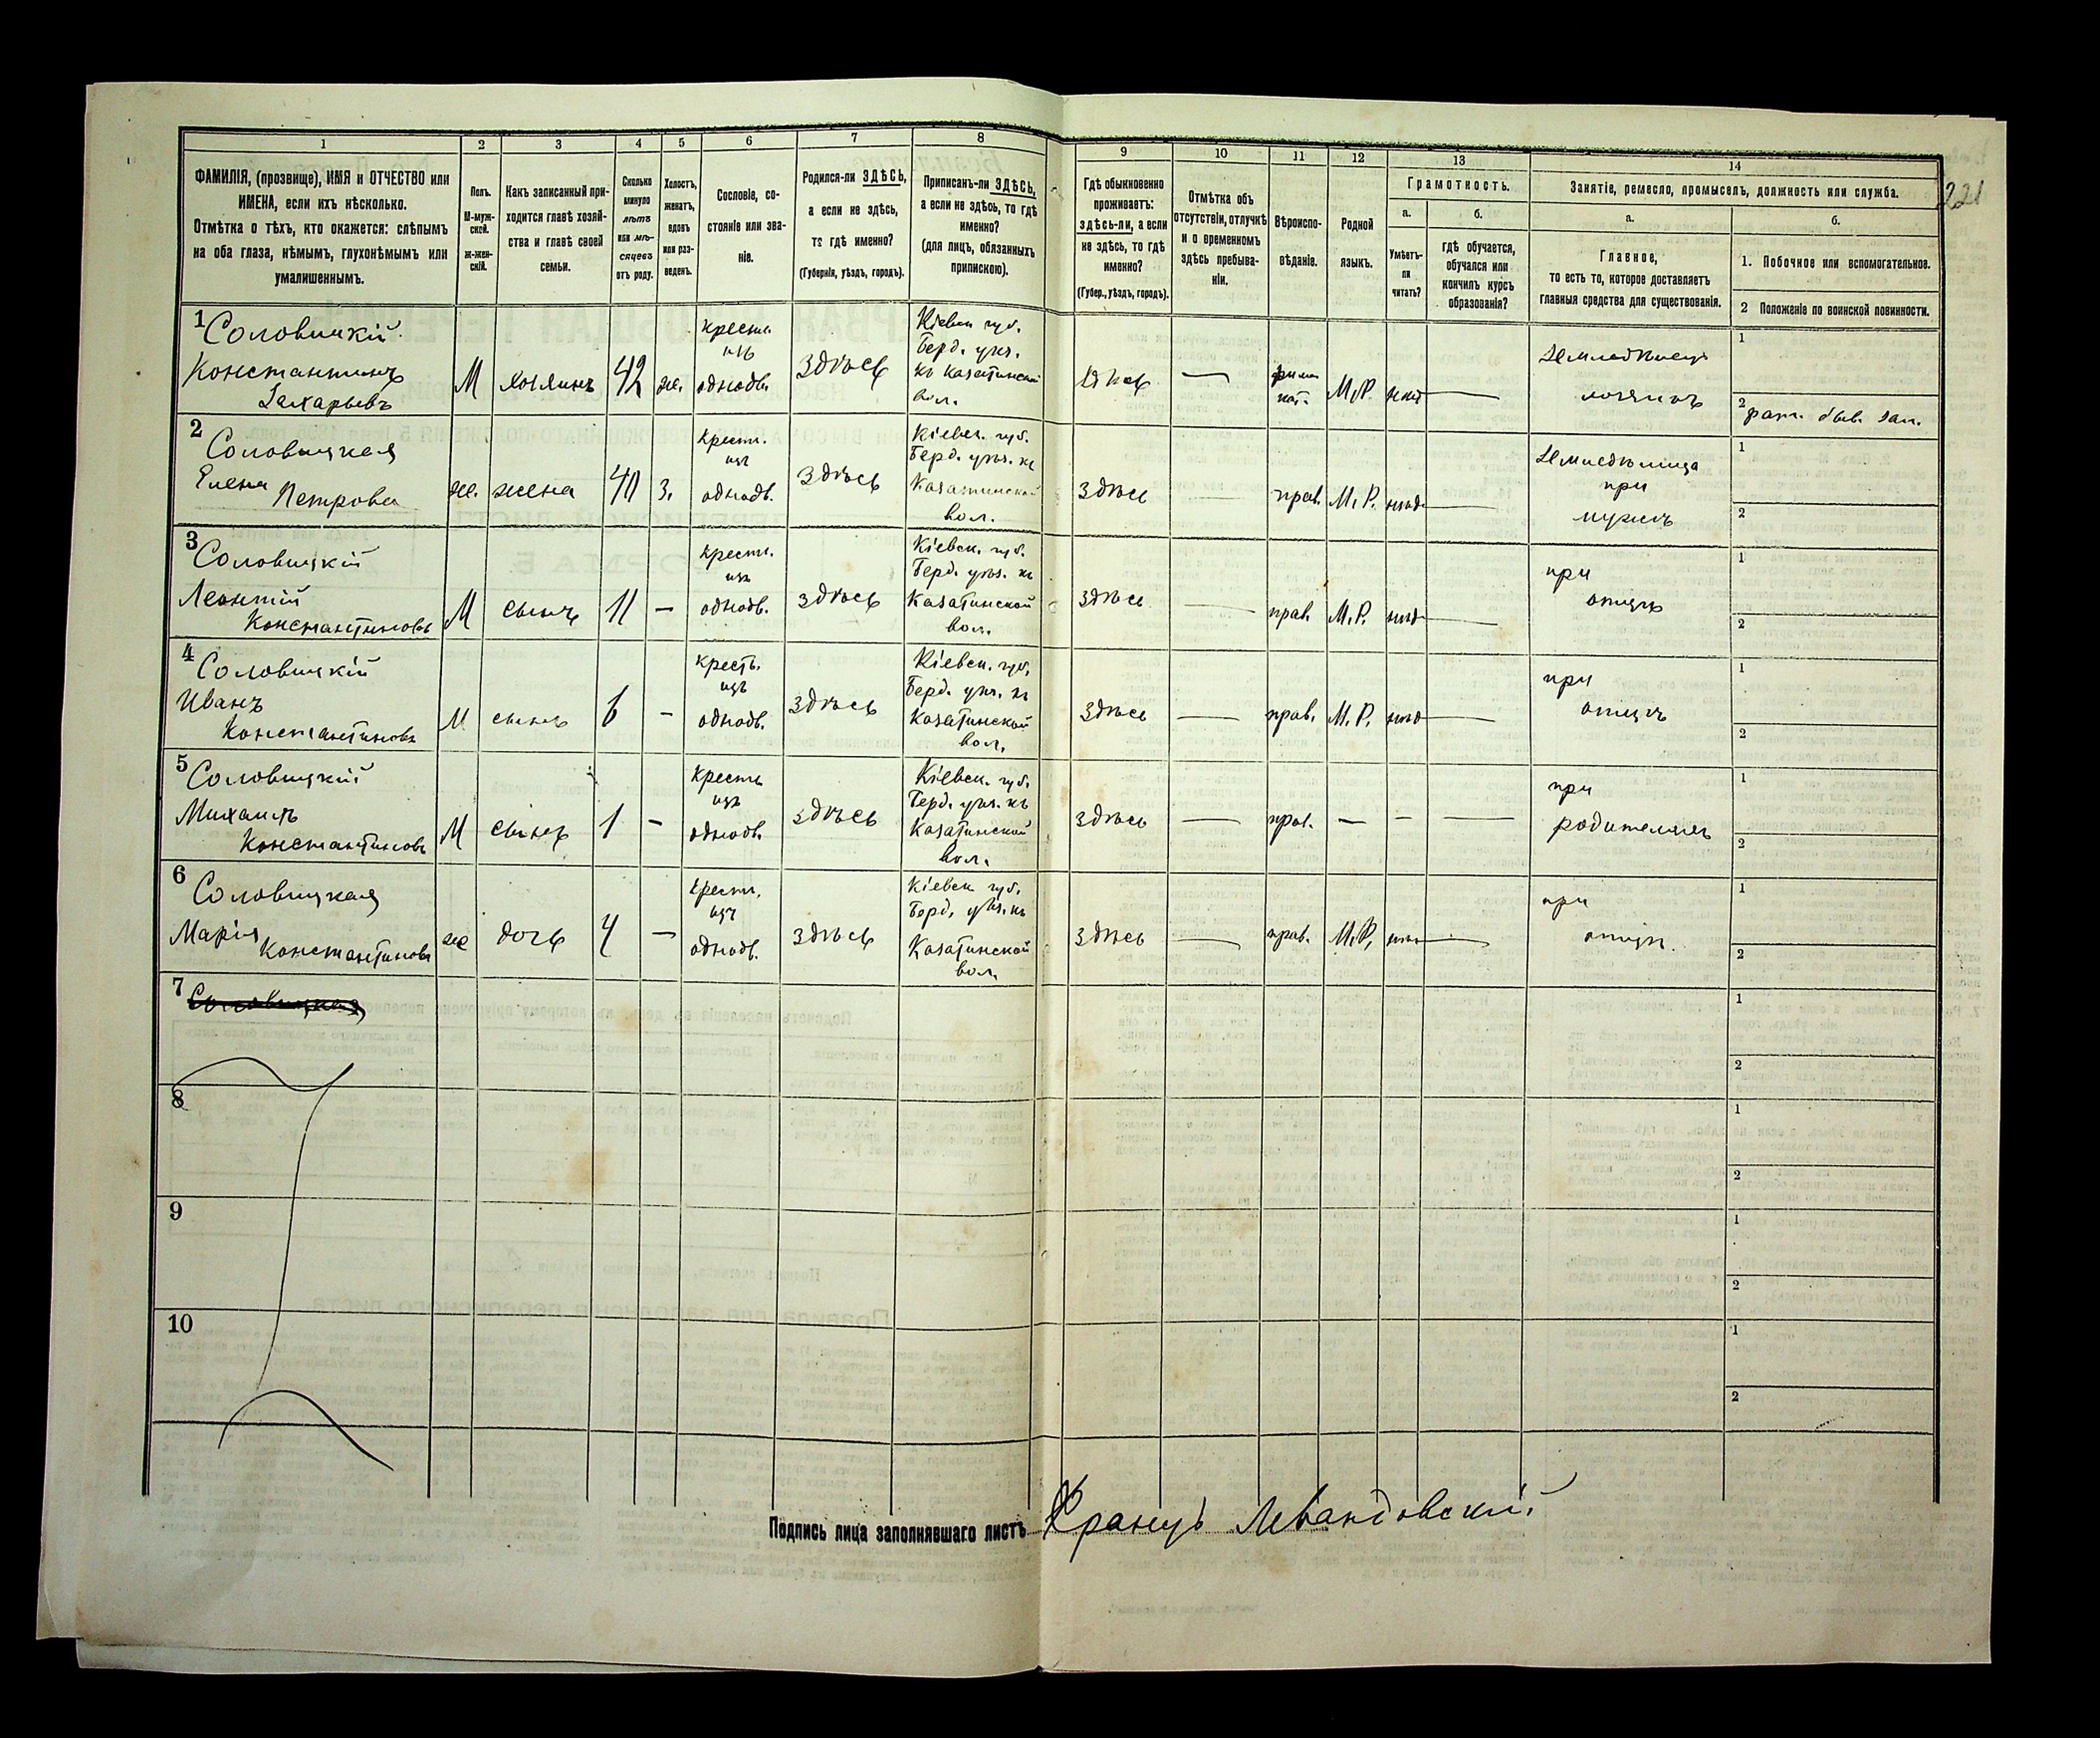 221
1 2 3 4 5 6 7 8 9 10 11 12 13 14
ФАМИЛІЯ, (прозвище), ИМЯ и ОТЧЕСТВО или
ИМЕНА, если ихъ нѣсколько.
Отмѣтка о тѣхъ, кто окажется: слѣпымъ
на оба глаза, нѣмымъ, глухонѣмымъ или
умалишеннымъ.
Полъ.
М-муж-
ской.
ж-жен-
скій.
Какъ записанный при-
ходится главѣ хозяй-
ства и главѣ своей
семьи.
Сколько
минуло
лѣтъ
или мѣ-
сяцевъ
отъ роду.
Холостъ,
женатъ,
вдовъ
или раз-
веденъ.
Сословіе, со-
стояніе или зва-
ніе.
Родился-ли ЗДѢСЬ,
а если не здѣсь,
то гдѣ именно?
(Губернія, уѣздъ, городъ).
Приписанъ-ли ЗДѢСЬ,
а если не здѣсь, то гдѣ
именно?
(для лицъ, обязанныхъ
припискою).
Гдѣ обыкновенно
проживаетъ:
здѣсь-ли, а если
не здѣсь, то гдѣ
именно?
(Губер., уѣздъ, городъ).
Отмѣтка объ
отсутствіи, отлучкѣ
и о временномъ
здѣсь пребыва-
ніи.
Вѣроиспо-
вѣданіе.
Родной
языкъ.
Грамотность.
а.
Умѣетъ-
ли
читать?
б.
гдѣ обучается,
обучался или
кончилъ курсъ
образованія?
Занятіе, ремесло, промыселъ, должность или служба.
а.
Главное,
то есть то, которое доставляетъ
главныя средства для существованія.
б.
1. Побочное или вспомогательное.
2 Положеніе по воинской повинности.
1
Соловицкій
Константинъ
Захарьевъ
М
хозяинъ
42
же.
крестн.
изъ
однодв.
здѣсь
Кіевск. губ.
Берд. уѣз.
къ Казатинской
вол.
здѣсь
—
римк.
кат.
М.Р.
—
Земледѣлецъ
хозяинъ
1
2 рат. быв. зап.
2
Соловицкая
Елена
Петрова
же.
жена
40
з.
крестн.
изъ
однодв.
здѣсь
Кіевск. губ.
Берд. уѣз. къ
Казатинской
вол.
здѣсь
—
прав.
М.Р.
—
Земледѣлица
при
мужѣ
1
2
3
Соловицкій
Леонтій
Константиновъ
М
сынъ
11
—
крестн.
изъ
однодв.
здѣсь
Кіевск. губ.
Берд. уѣз. къ
Казатинской
вол.
здѣсь
—
прав.
М.Р.
—
при
отцѣ
1
2
4
Соловицкій
Иванъ
Константиновъ
М
сынъ
6
—
кресть.
изъ
однодв.
здѣсь
Кіевск. губ.
Берд. уѣз. къ
Казатинской
вол.
здѣсь
—
прав.
М.Р.
—
при
отцѣ
1
2
5
Соловицкій
Михаилъ
Константиновъ
М
сынъ
1
—
кресть
изъ
однодв.
здѣсь
Кіевск. губ.
Берд. уѣз. къ
Казатинской
вол.
здѣсь
—
прав.
—
—
—
при
родителяхъ
1
2
6
Соловицкая
Марія
Константинова
же
дочь
4
—
крестн.
изъ
однодв.
здѣсь
Кіевск. губ.
Берд. уѣз. къ
Казатинской
вол.
здѣсь
—
прав.
М.Р.
—
при
отцѣ.
1
2
7
Соловицкая
1
2
8
1
2
9
1
2
10
1
2
Подпись лица заполнявшаго листъ Францъ Левандовскій